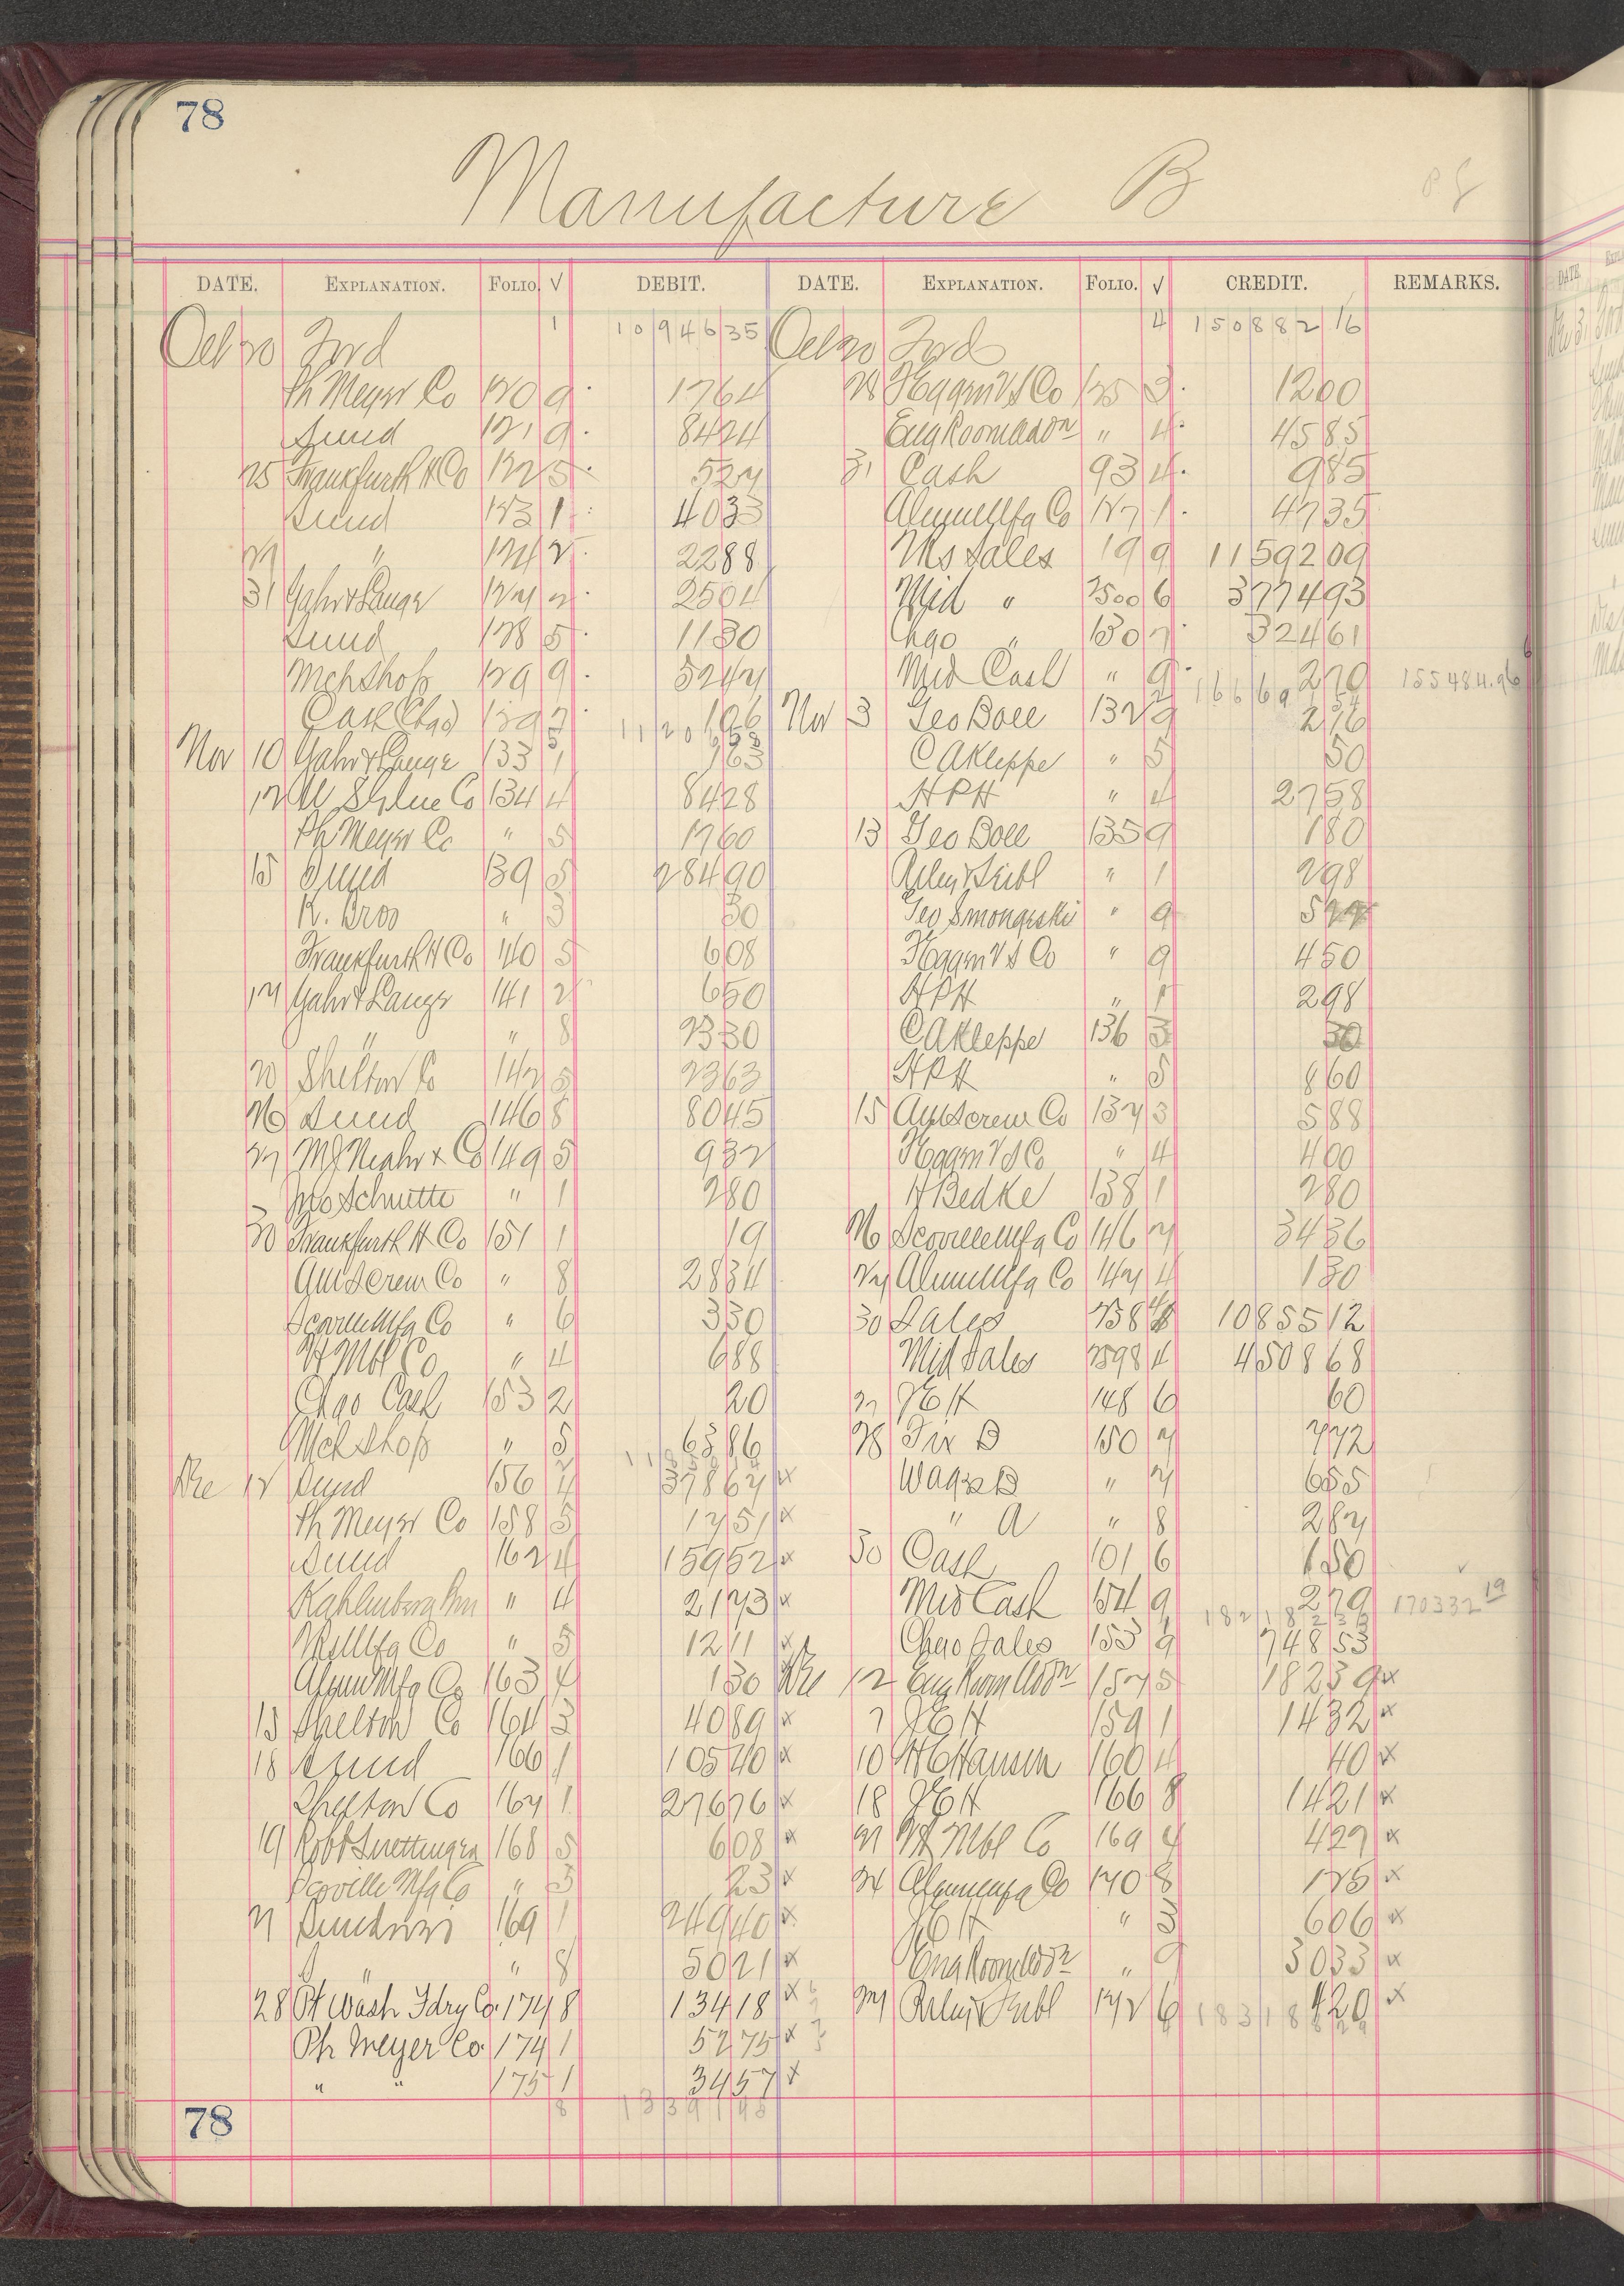 78
Manufacture B
DATE. EXPLANATION. FOLIO. √ DEBIT. DATE. EXPLANATION. FOLIO. √ CREDIT. REMARKS.
Oct 20 Ford 1 10946 35 Oct 20 Ford 4 150882 16
Ph Meyer Co 120 9 17 64 28 Hagem V S Co 125 3 12 00
Sund 121 9 84 24 Eng Room " 4 45 85
25 Frankfurth H Co 122 5 5 27 31 Cash 93 4 9 85
Sund 123 1 40 33 Alum Mfg Co 127 1 47 35
27 " 124 2 22 88 Ms Sales 19 9 11592 09
31 Gahr & Lange 127 2 25 04 Mid " 2500 6 3774 93
Sund 128 5 11 30 Chgo " 130 7 324 61
Mch Shop 129 9 52 47 Mid Cash " 9 2 70 155484.96
Cash Chgo 1 06 Nov 3 Geo Boll 132 9 2 16
Nov 10 Gahr & Lange 133 1 1 63 C A Kleppe " 5 50
12 Co 134 4 84 28 H P H " 4 27 58
Ph Meyer Co " 5 17 60 13 Geo Boll 135 9 1 80
15 Sund 139 5 284 90 " 1 2 98
K. Bros " 3 30 Geo " 9
Frankfurth H Co 140 5 6 08 Hagem V S Co " 9 4 50
17 Gahr & Lange 141 2 6 50 H P H " 1 2 98
" " 8 23 30 C A Kleppe 136 3 30
20 Shelton Co 142 5 23 63 H P H " 5 8 60
26 Sund 146 8 80 45 15 Am Screw Co 137 3 5 88
27 & Co 149 5 9 32 Hagem V S Co " 4 4 00
Jno Schuette " 1 2 80 H Bedke 138 1 2 80
30 Frankfurth H Co 151 1 19 26 Scoville Mfg Co 146 7 34 36
Am Screw Co " 8 28 34 27 Alum Mfg Co 147 4 1 80
Scoville Mfg Co " 6 3 30 30 Sales 10855 12
Co " 4 6 88 Mid Sales 2598 4 4508 68
Chgo Cash 153 2 20 27 J E H 148 6 60
Mch Shop " 5 63 86 28 Fix B 150 7 7 72
Dec 12 Sund 156 4 378 67 x Wages B " 7 6 55
Ph Meyer Co 158 5 17 51 x " A " 8 2 87
Sund 162 4 159 52 x 30 Cash 101 6 1 50
Kahlenberg Bros " 4 21 73 x Mid Cash 154 9 2 79 170332 19
Mfg Co " 5 12 11 x Chgo Sales 153 9 748 53
Alum Mfg Co 163 4 1 30 Dec 12 Eng Room 157 5 182 39 x
15 Shelton Co 164 3 40 89 x 7 J E H 159 1 14 32 x
18 Sund 166 1 105 40 x 10 H C Hansen 160 4 40 x
Shelton Co 167 1 276 76 x 18 J E H 166 8 14 21 x
19 Robt 168 5 6 08 x 21 Co 169 4 4 29 x
Scoville Mfg Co " 3 23 x 24 Alum Mfg Co 170 8 1 25 x
21 Sundries 169 1 249 40 x J E H " 3 6 06 x
" " 8 50 21 x Eng Room " 9 30 33 x
28 Pt Wash Fdry Co. 174 8 134 18 x 27 172 6 4 20 x
Ph Meyer Co. 174 1 52 75 x
" " 175 1 34 57 x
78